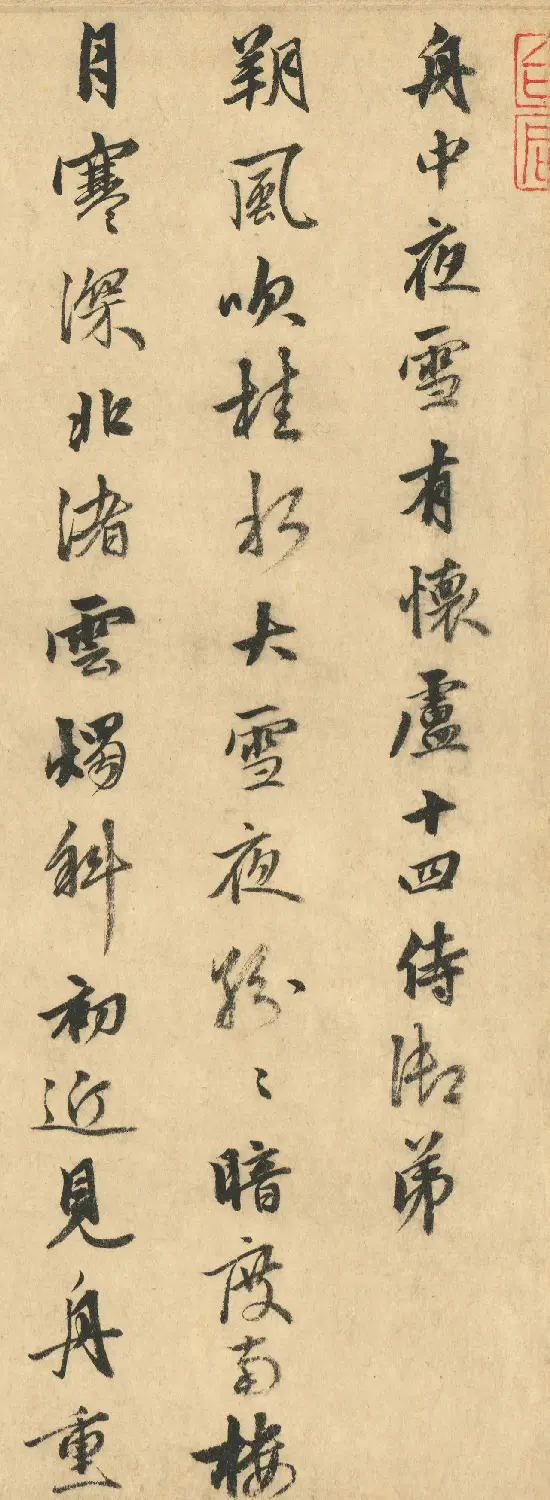 舟中夜雪有懷盧十四侍御弟
朔風吹桂水大雪夜紛〻暗度南樓
月寒深北渚雲燭斜初近見舟重